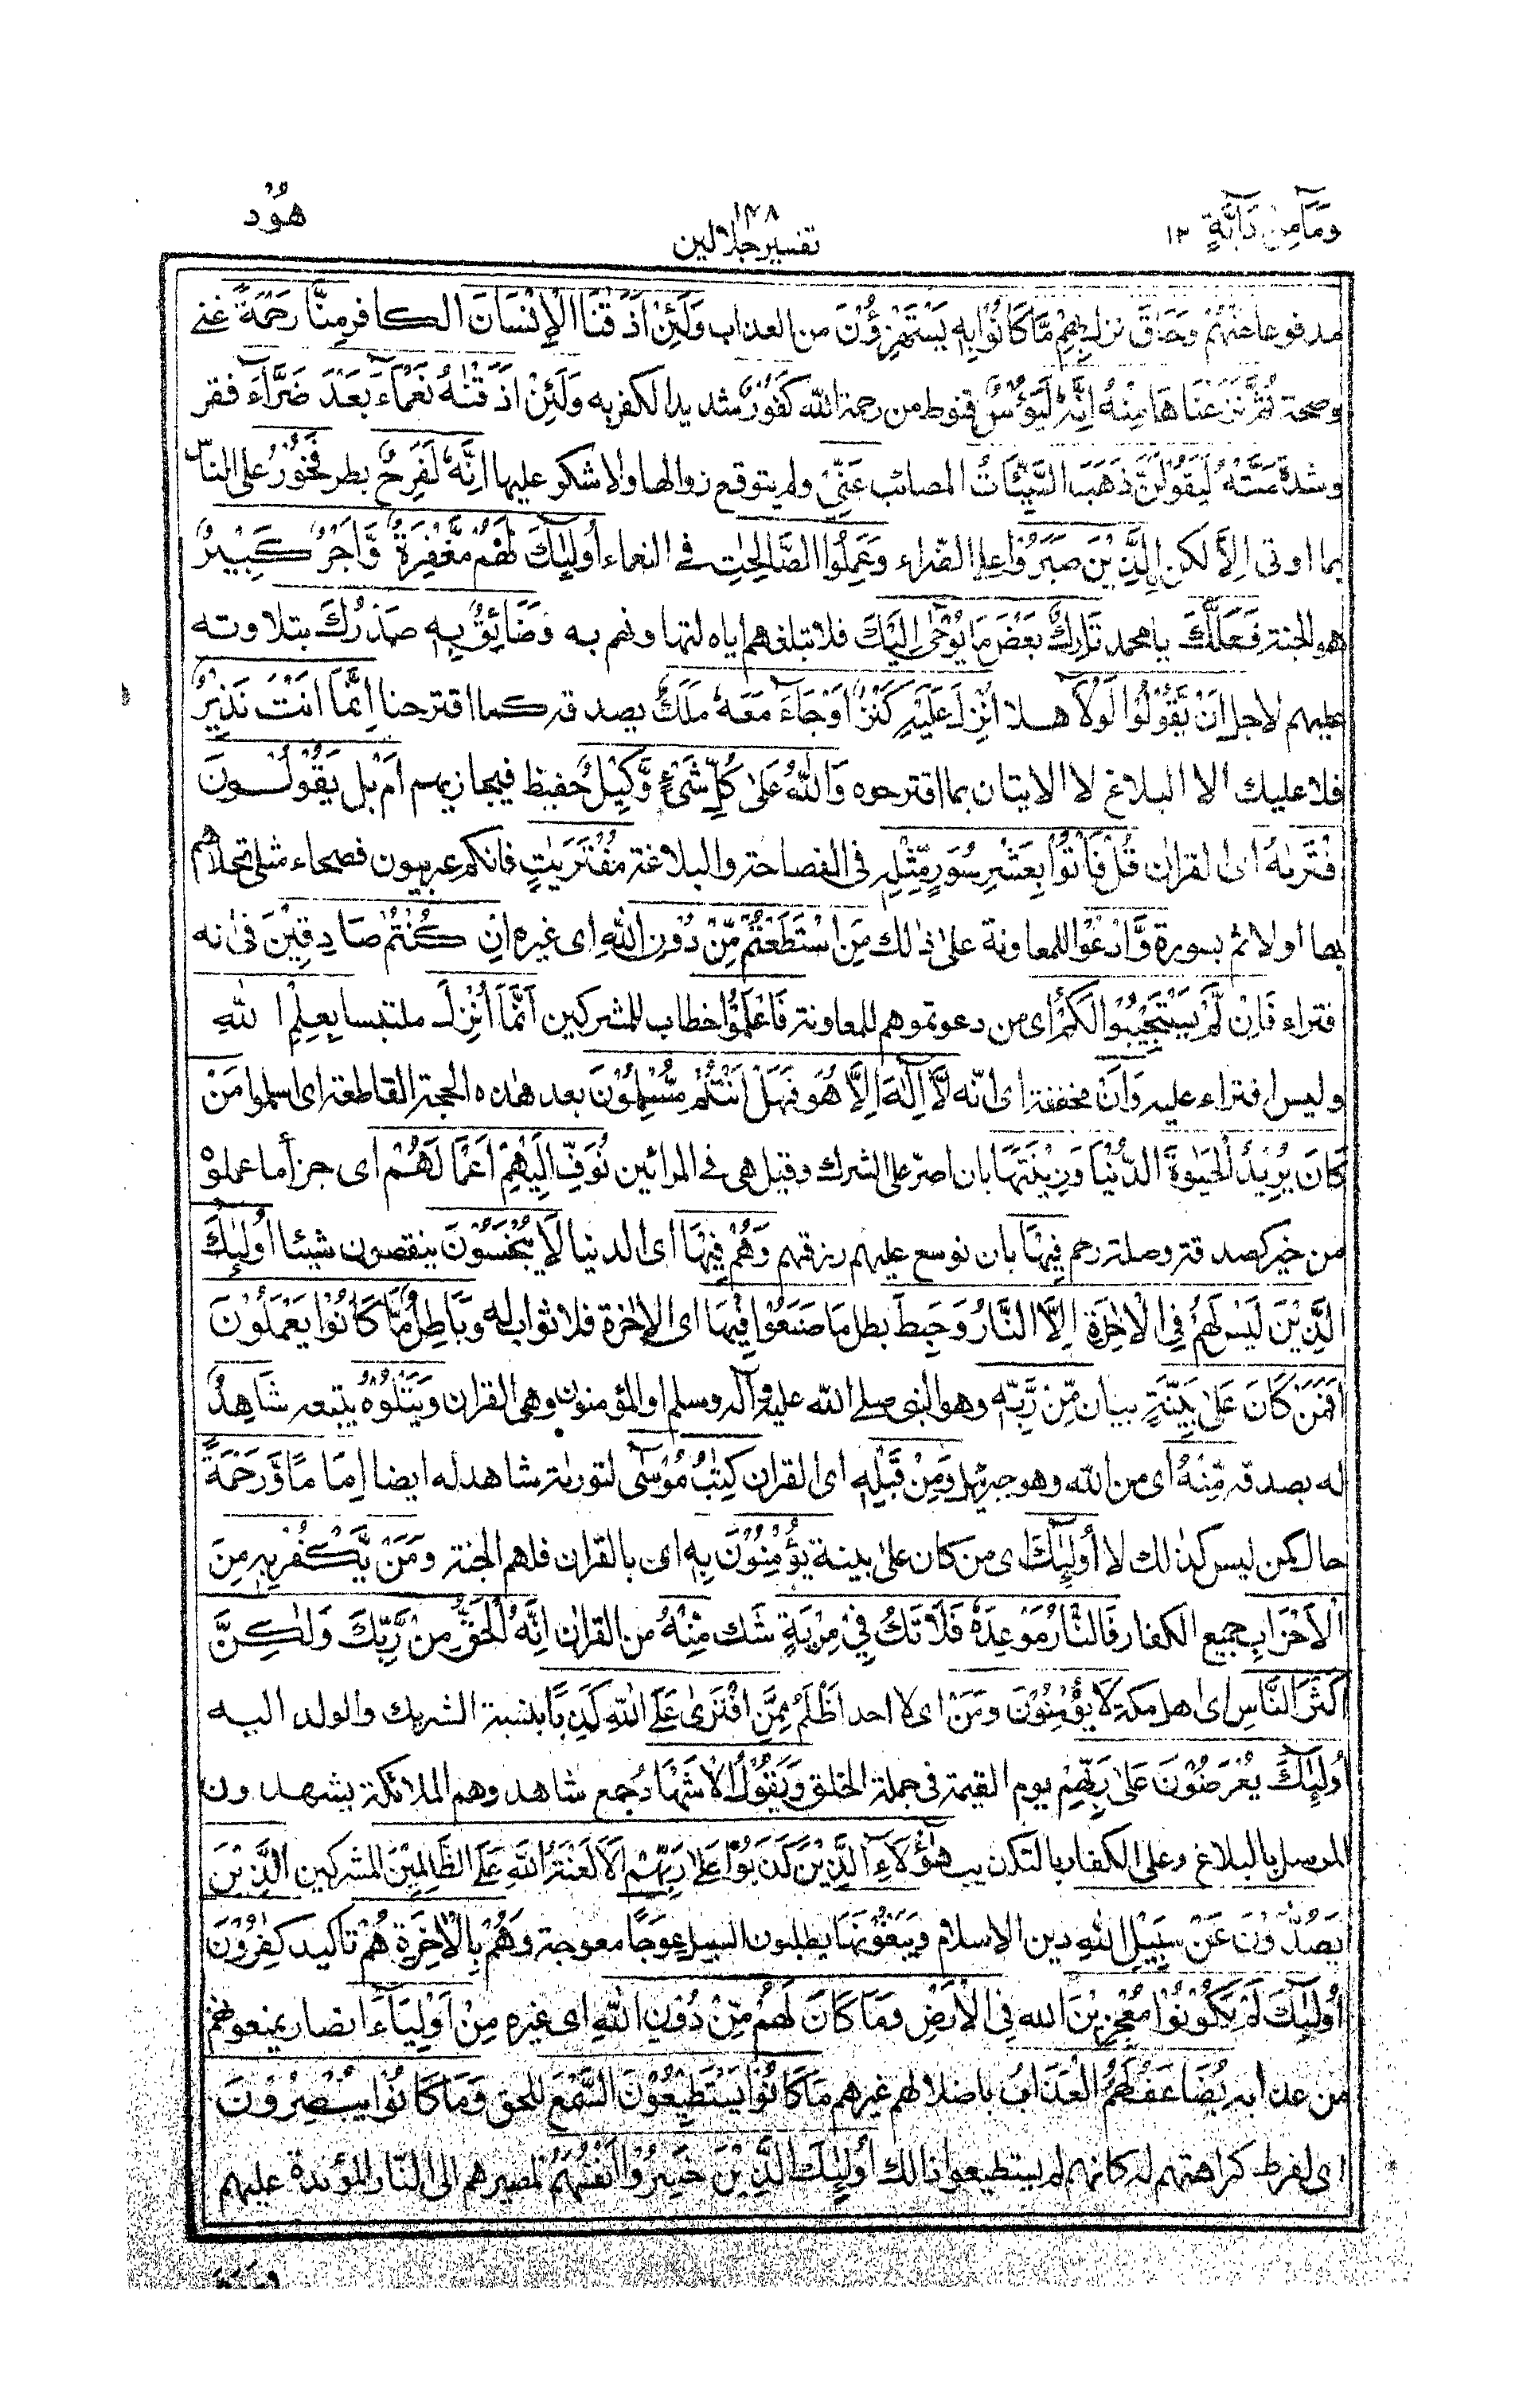 وَمَا مِنْ دَآبَّةٍ ١٢
١٤٨
تفسير جلالين
هُوْد
مدفوعا عَنْهُمْ وَحَاقَ نزل بِهِمْ مَّا كَانُوْا بِهٖ يَسْتَهْزِؤُنَ من العذاب وَلَئِنْ اَذَقْنَا الْاِنْسَانَ الكافر مِنَّا رَحْمَةً غنى
وصحة ثُمَّ نَزَعْنَاهَا مِنْهُ اِنَّهٗ لَيَؤُسٌ قنوط من رحمة الله كَفُوْرٌ شديد الكفر به وَلَئِنْ اَذَقْنٰهُ نَعْمَآءَ بَعْدَ ضَرَّآءَ فقر
وشدة مَسَّتْهُ لَيَقُوْلَنَّ ذَهَبَ السَّيِّئَاتُ المصائب عَنِّيْ ولم يتوقع زوالها ولا شكر عليها اِنَّهٗ لَفَرِحٌ بطر فَخُوْرٌ على الناس
بما اوتى اِلَّا لكن الَّذِيْنَ صَبَرُوْا على الضراء وَعَمِلُوا الصَّالِحٰتِ فى النعماء اُولٰٓئِكَ لَهُمْ مَّغْفِرَةٌ وَّاَجْرٌ كَبِيْرٌ
هو الجنة فَلَعَلَّكَ يا محمد تَارِكٌ بَعْضَ مَا يُوْحٰٓى اِلَيْكَ فلا تبلغهم اياه لتهاونهم به وَضَائِقٌ بِهٖ صَدْرُكَ بتلاوته
عليهم لاجل اَنْ يَّقُوْلُوْا لَوْلَآ هلا اُنْزِلَ عَلَيْهِ كَنْزٌ اَوْ جَآءَ مَعَهٗ مَلَكٌ يصدقه كما اقترحنا اِنَّمَآ اَنْتَ نَذِيْرٌ
فلا عليك الا البلاغ لا الاتيان بما اقترحوه وَاللّٰهُ عَلٰى كُلِّ شَيْءٍ وَّكِيْلٌ حفيظ فيجازيهم اَمْ بل يَقُوْلُوْنَ
افْتَرٰىهُ اى القران قُلْ فَاْتُوْا بِعَشْرِ سُوَرٍ مِّثْلِهٖ فى الفصاحة والبلاغة مُفْتَرَيٰتٍ فانكم عربيون فصحاء مثلى تحداهم
بها اولا ثم بسورة وَّادْعُوْا للمعاونة على ذالك مَنِ اسْتَطَعْتُمْ مِّنْ دُوْنِ اللّٰهِ اى غيره اِنْ كُنْتُمْ صَادِقِيْنَ فى انه
افتراء فَاِنْ لَّمْ يَسْتَجِيْبُوْا لَكُمْ اى من دعوتموهم للمعاونة فَاعْلَمُوْٓا خطاب للمشركين اَنَّمَآ اُنْزِلَ ملتبسا بِعِلْمِ اللّٰهِ
وليس افتراء عليه وَاَنْ مخففة اى انه لَّآ اِلٰهَ اِلَّا هُوَ فَهَلْ اَنْتُمْ مُّسْلِمُوْنَ بعد هذه الحجة القاطعة اى اسلموا مَنْ
كَانَ يُرِيْدُ الْحَيٰوةَ الدُّنْيَا وَزِيْنَتَهَا بان اصر على الشرك وقيل هى فى المرائين نُوَفِّ اِلَيْهِمْ اَعْمَالَهُمْ اى جزاء ما عملوه
من خير كصدقة وصلة رحم فِيْهَا بان نوسع عليهم رزقهم وَهُمْ فِيْهَا اى الدنيا لَا يُبْخَسُوْنَ ينقصون شيئا اُولٰٓئِكَ
الَّذِيْنَ لَيْسَ لَهُمْ فِى الْاٰخِرَةِ اِلَّا النَّارُ وَحَبِطَ بطل مَا صَنَعُوْا فِيْهَا اى الاخرة فلا ثواب له وَبَاطِلٌ مَّا كَانُوْا يَعْمَلُوْنَ
اَفَمَنْ كَانَ عَلٰى بَيِّنَةٍ بيان مِّنْ رَّبِّهٖ وهو النبى صلى الله عليه وآله وسلم او المؤمنون وهى القران وَيَتْلُوْهُ يتبعه شَاهِدٌ
له بصدقه مِّنْهُ اى من الله وهو جبرئيل وَمِنْ قَبْلِهٖ اى القران كِتٰبُ مُوْسٰٓى التورىة شاهد له ايضا اِمَامًا وَّرَحْمَةً
حال كمن ليس كذالك لا اُولٰٓئِكَ اى من كان على بينة يُؤْمِنُوْنَ بِهٖ اى بالقران فلهم الجنة وَمَنْ يَّكْفُرْ بِهٖ مِنَ
الْاَحْزَابِ جميع الكفار فَالنَّارُ مَوْعِدُهٗ فَلَا تَكُ فِيْ مِرْيَةٍ شك مِّنْهُ من القران اِنَّهُ الْحَقُّ مِنْ رَّبِّكَ وَلٰكِنَّ
اَكْثَرَ النَّاسِ اى اهل مكة لَا يُؤْمِنُوْنَ وَمَنْ اى لا احد اَظْلَمُ مِمَّنِ افْتَرٰى عَلَى اللّٰهِ كَذِبًا بنسبة الشريك والولد اليه
اُولٰٓئِكَ يُعْرَضُوْنَ عَلٰى رَبِّهِمْ يوم القيمة فى جملة الخلق وَيَقُوْلُ الْاَشْهَادُ جمع شاهد وهم الملائكة يشهدون
للرسل بالبلاغ وعلى الكفار بالتكذيب هٰٓؤُلَآءِ الَّذِيْنَ كَذَبُوْا عَلٰى رَبِّهِمْ اَلَا لَعْنَةُ اللّٰهِ عَلَى الظّٰلِمِيْنَ المشركين الَّذِيْنَ
يَصُدُّوْنَ عَنْ سَبِيْلِ اللّٰهِ دين الاسلام وَيَبْغُوْنَهَا يطلبون السبيل عِوَجًا معوجة وَهُمْ بِالْاٰخِرَةِ هُمْ تاكيد كٰفِرُوْنَ
اُولٰٓئِكَ لَمْ يَكُوْنُوْا مُعْجِزِيْنَ الله فِى الْاَرْضِ وَمَا كَانَ لَهُمْ مِّنْ دُوْنِ اللّٰهِ اى غيره مِنْ اَوْلِيَآءَ انصار يمنعونهم
من عذابه يُضَاعَفُ لَهُمُ الْعَذَابُ باضلالهم غيرهم مَا كَانُوْا يَسْتَطِيْعُوْنَ السَّمْعَ للحق وَمَا كَانُوْا يُبْصِرُوْنَ
اى لفرط كراهتهم له كانهم لم يستطيعوا ذالك اُولٰٓئِكَ الَّذِيْنَ خَسِرُوْٓا اَنْفُسَهُمْ لمصيرهم الى النار المؤبدة عليهم